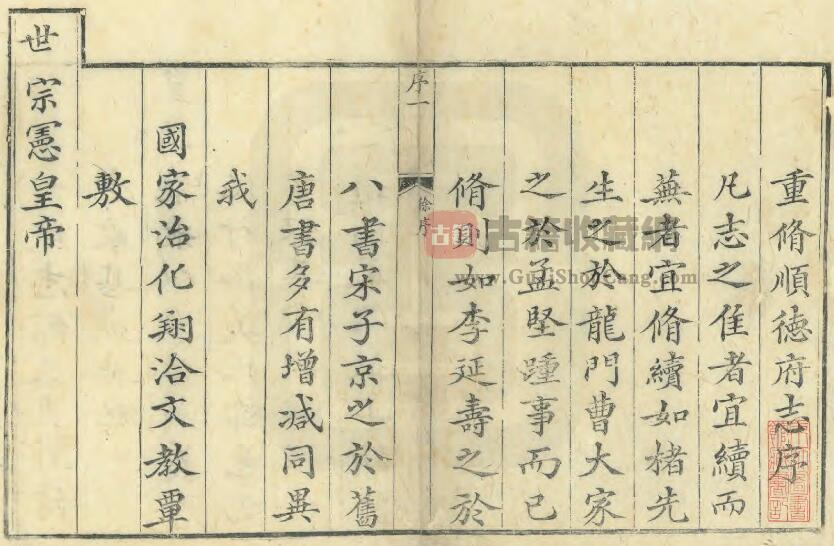 重脩順徳府志序
凡志之隹者宜續而
蕪者宜脩續如褚先
生之於龍門曹大家
之於孟堅踵事而已
脩則如李延壽之於
序一
徐序
八書宋子京之於舊
唐書多有增减同異
我
國家治化翔洽文教覃
敷
世宗憲皇帝
古籍收藏網
www.GuJiShouCang.com